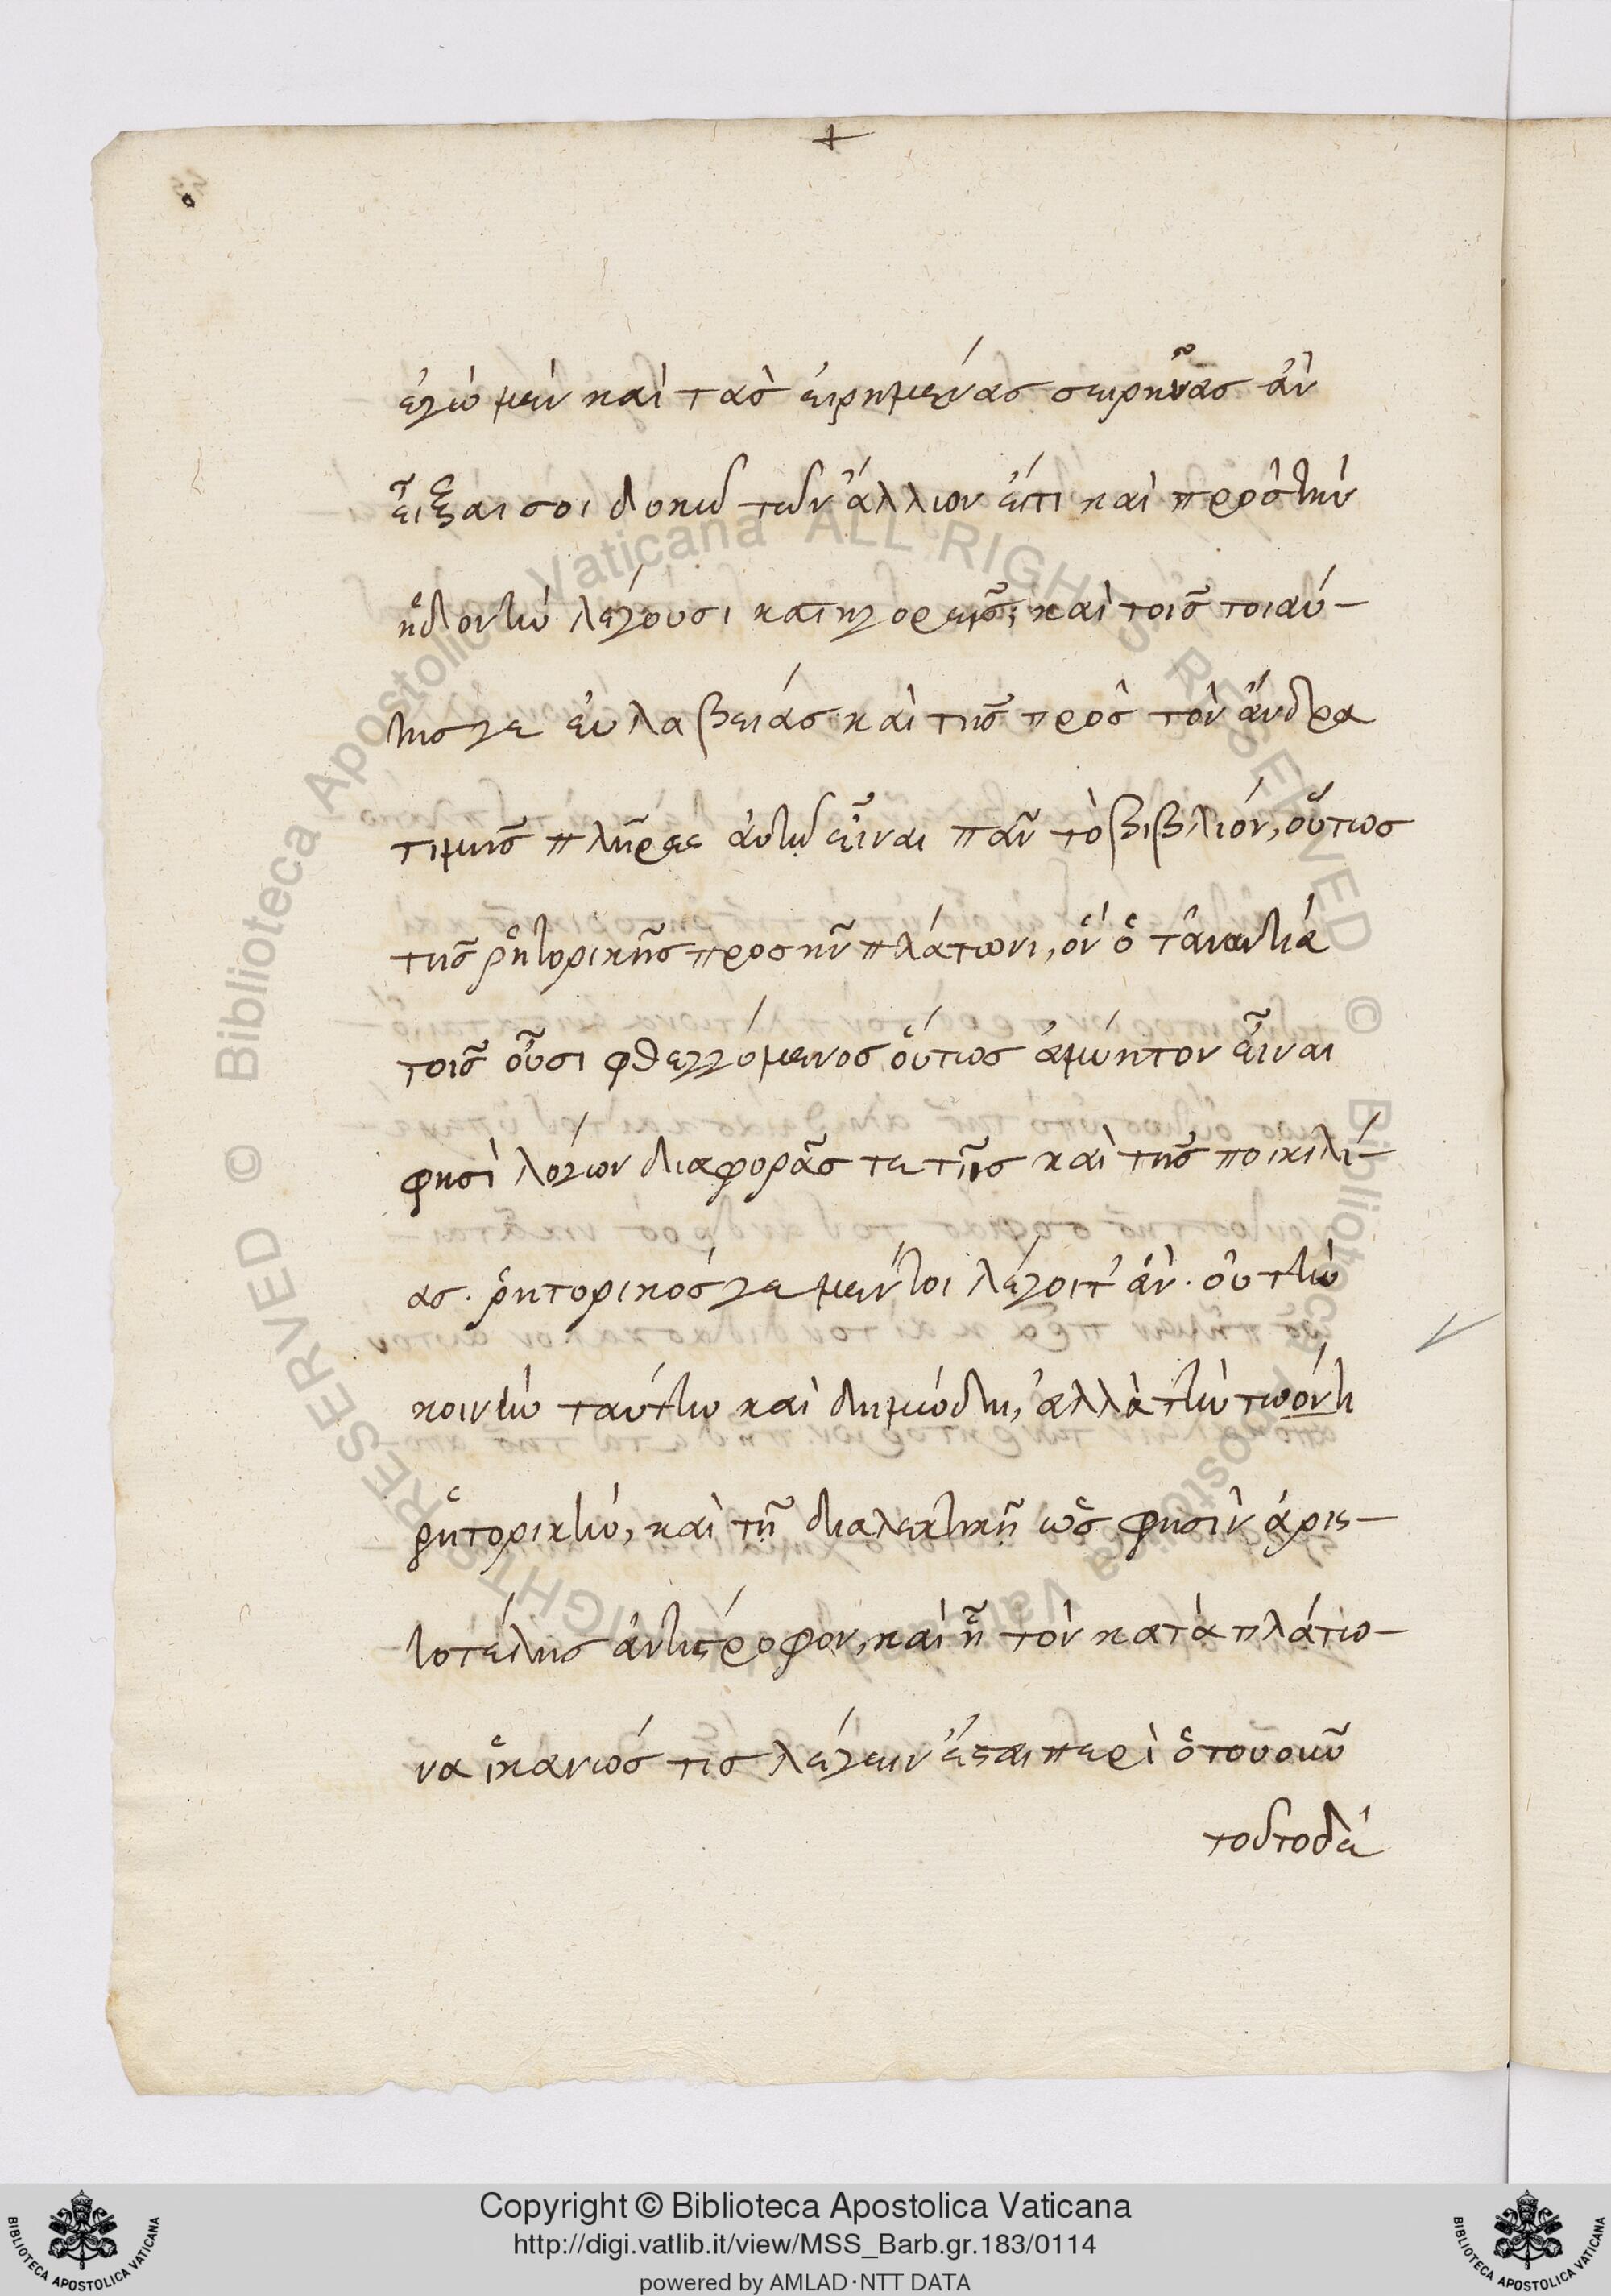 +
ἐγὼ μὲν καὶ τὰσ εἰρημένας σειρῆνας ἂν
εἷξαι σοι δοκῶ τῶν ἄλλων ἔτι καὶ πρὸς τὴν
ἡδονὴν λέγουσι κατηγορεῖς; καὶ τοῖς τοιαύ-
της γε εὐλαβείας καὶ τῆς πρὸς τὸν ἄνδρα
τιμῆς πλῆρες αὐτῶ εἶναι πᾶν τὸ βιβλίον, οὕτως
τῆς ῥητορικῆς προσῆν πλάτωνι, ὃν ὁ τἀναντία
τοῖς οὖσι φθεγγόμενος οὕτως ἀμύητον εἶναι
φησὶ λόγων διαφορᾶς τε τῆς καὶ τῆς ποικιλί-
ας. ῥητορικός γε μέντοι λέγοιτ' ἄν. οὐ τὴν
κοινὴν ταύτην καὶ δημώδη, ἀλλὰ τὴν τωόντι
ῥητορικὴν, καὶ τῇ διαλεκτικῇ ὥς φησιν ἀρισ-
τοτέλης ἀντίστροφον, καὶ ᾗ τὸν κατὰ πλάτω-
να ἱκανῶς τις λέγειν ἔσται περὶ ὁτουοῦν
τοῦτο δὲ
Copyright © Biblioteca Apostolica Vaticana
http://digi.vatlib.it/view/MSS_Barb.gr.183/0114
powered by AMLAD·NTT DATA